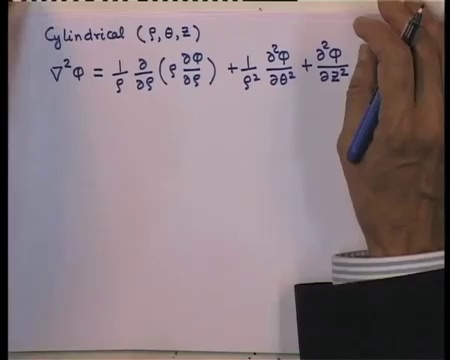 Cylindrical (ρ, θ, z)
∇²φ = 1/ρ ∂/∂ρ (ρ ∂φ/∂ρ) + 1/ρ² ∂²φ/∂θ² + ∂²φ/∂z²